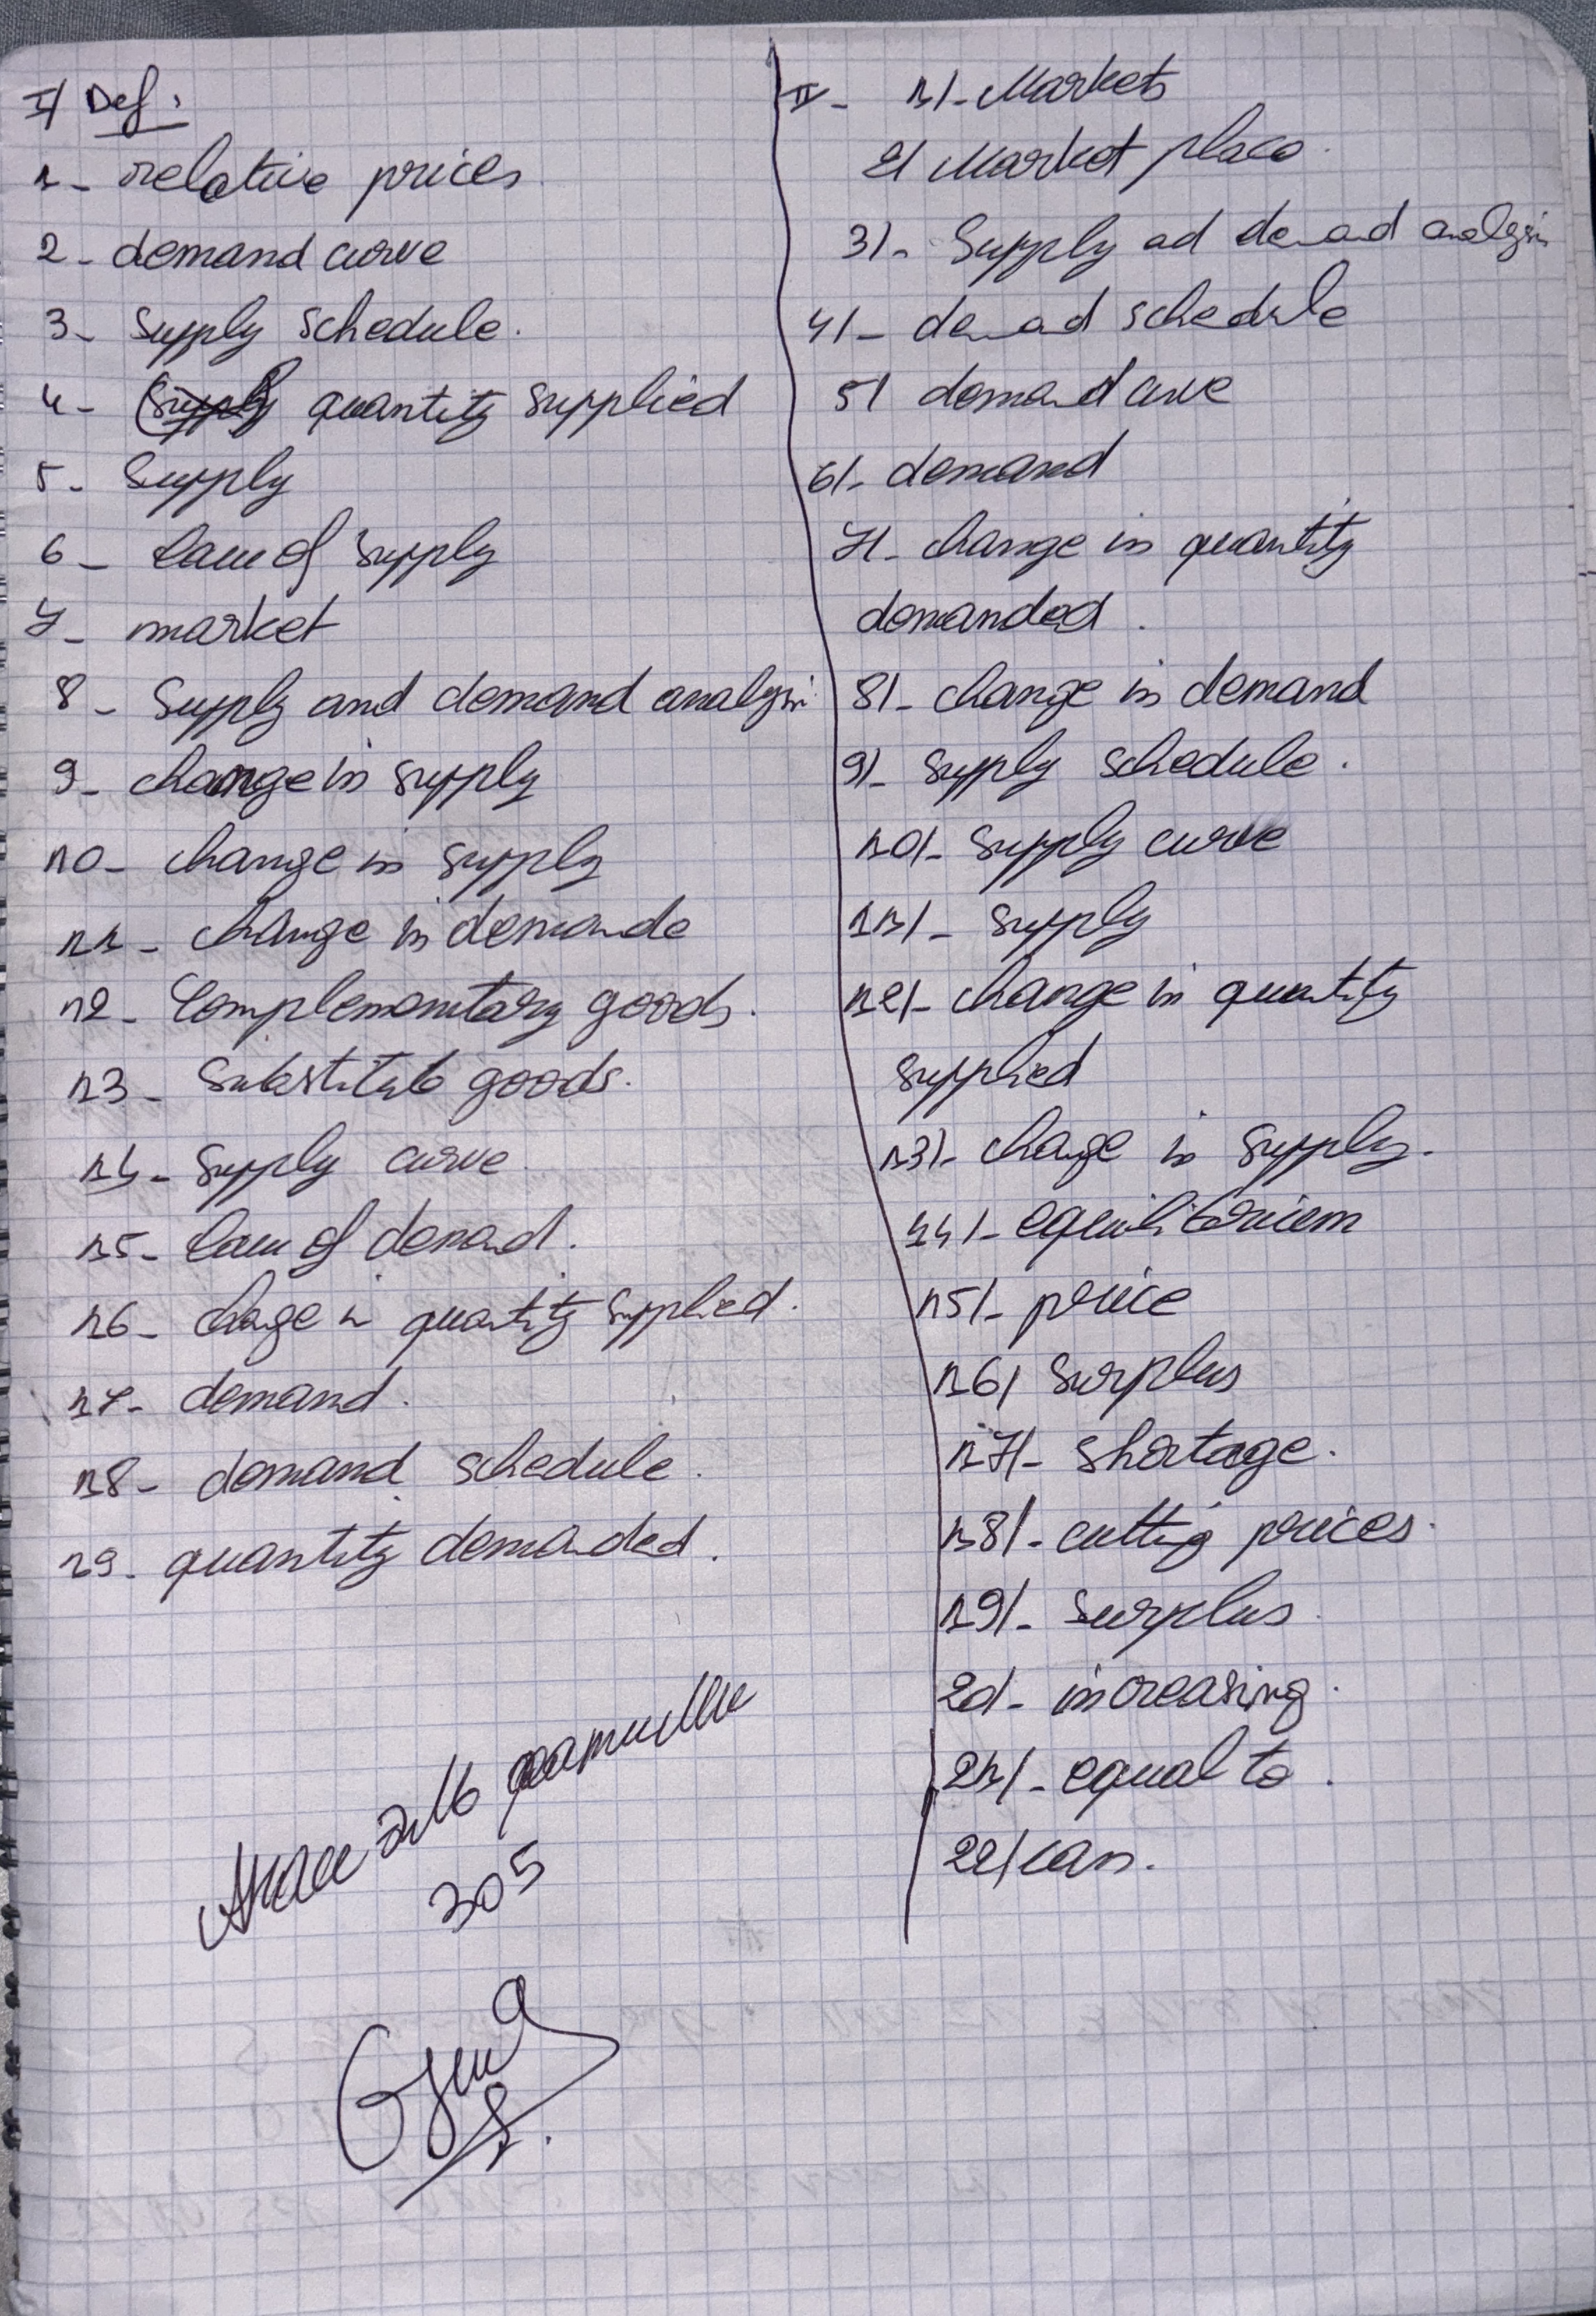 I/ Def:
1- relative prices
2- demand curve
3- Supply schedule.
4- quantity supplied
5- Supply
6- law of supply
7- market
8- Supply and demand analysis
9- change in supply
10- change in supply
11- change in demande
12- Complementary goods.
13- Substitute goods.
14- Supply curve
15- law of demand.
16- change in quantity supplied.
17- demand.
18- demand schedule.
19- quantity demanded.
305
II- 1/- Markets
2/ Market place.
3/- Supply ad demand analysis
4/- demad schedule
5/ demand curve
6/- demand
7/- change in quantity
demanded.
8/- change in demand
9/- supply schedule.
10/- supply curve
11/- supply
12/- change in quantity
supplied
13/- change in supply.
14/- equilibrium
15/- price
16/ Surplus
17/- shortage.
18/- cutting prices.
19/- surplus.
20/- increasing.
21/- equal to.
22/ can.